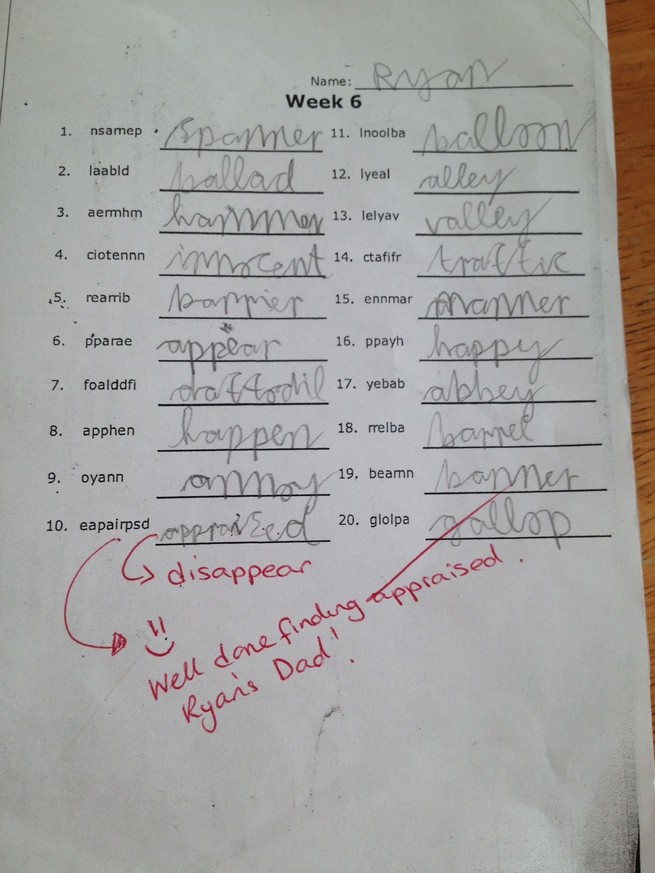 Name: Ryan
Week 6
1. nsamep spanner
2. laabld ballad
3. aermhm hammer
4. ciotennn innocent
5. rearrib barrier
6. pparae appear
7. foalddfi daffodil
8. apphen happen
9. oyann annoy
10. eapairpsd appraised
11. lnoolba balloon
12. lyeal alley
13. lelyav valley
14. ctafifr traffic
15. ennmar manner
16. ppayh happy
17. yebab abbey
18. rrelba barrel
19. beamn banner
20. glolpa gallop
disappear
Well done finding appraised.
Ryan's Dad!